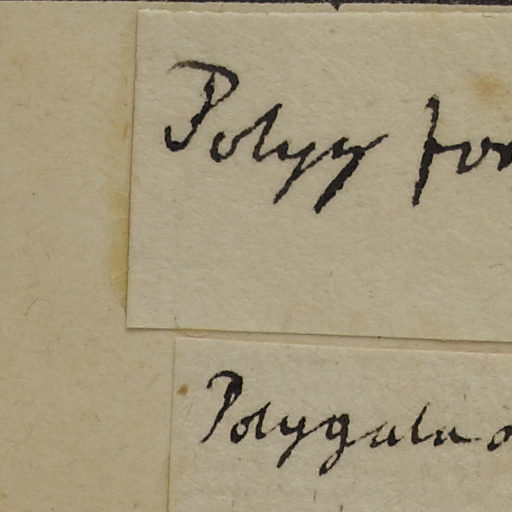 Polyg for
Polygala